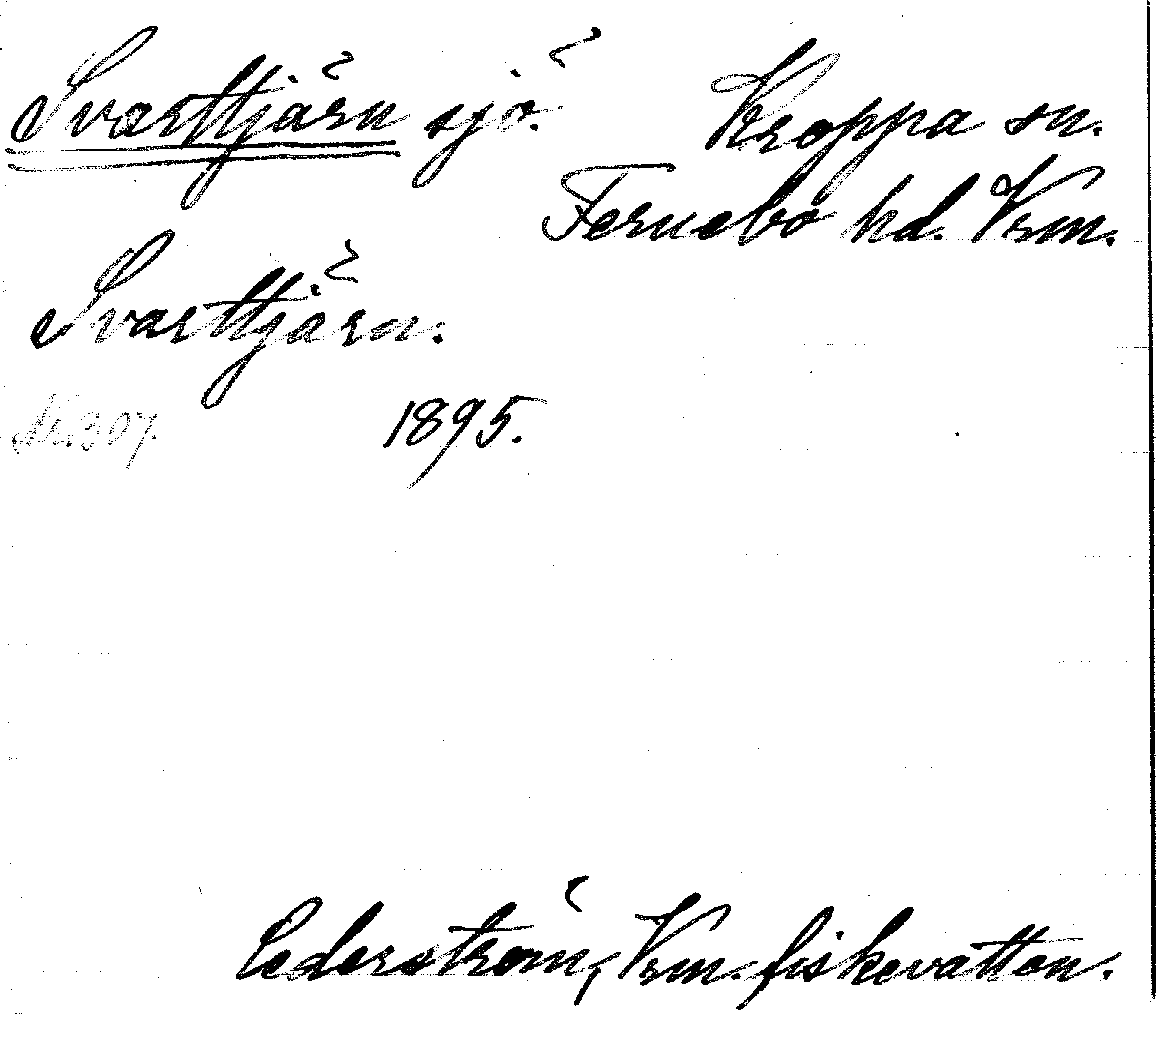 Svarttjärn sjö. Kroppa sn.
Fernebo hd. Vrm.
Svarttjärn.
Nr. 307. 1895.
Cederström, Vrm. fiskevatten.